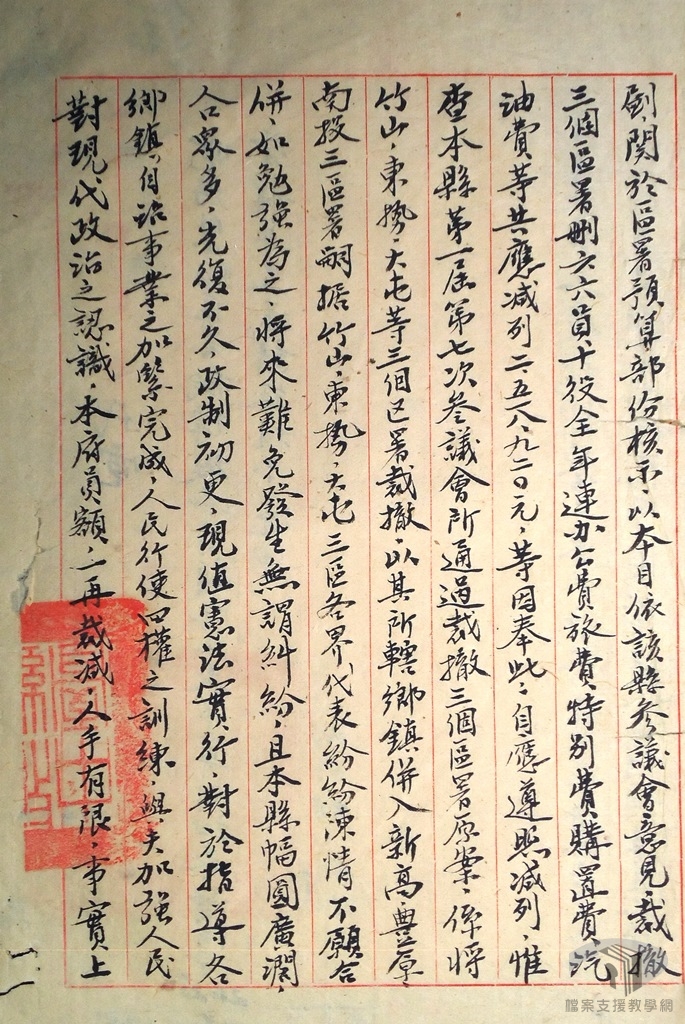 副、関於區署預算部份核示、以本目依該縣参議會意見、裁撤
三個區署刪六六員十役全年連办公費旅費特别費購置費、汽
油費等共應减列二、五一八、九二〇元、等因奉此、自應遵照减列、惟
查本縣第一届第七次参議會所通過裁撤三個區署原案、係將
竹山、東勢、大屯等三個区署裁撤、以其所轄鄉鎮併入新高、豊原、
南投三區署嗣据竹山、東勢、大屯三區各界代表紛紛涑情不願合
併、如勉强為之、將來難免發生無謂糾紛、且本縣幅圓廣濶、
人口衆多、光復不久、政制初更、現值憲法實行、對於指導各
鄉鎮、自治事業之加緊完成、人民行使四權之訓練、與夫加强人民
對現代政治之認識、本府員額、一再裁减、人手有限、事實上
檔案支援教學網